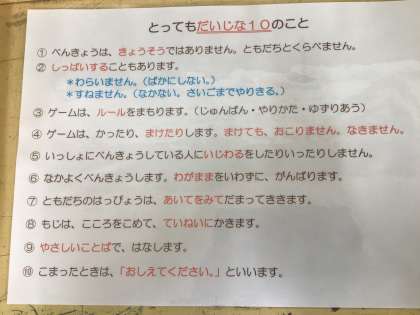 とってもだいじな１０のこと
① べんきょうは、きょうそうではありません。ともだちとくらべません。
② しっぱいすることもあります。
＊わらいません。（ばかにしない。）
＊すねません。（なかない。さいごまでやりきる。）
③ ゲームは、ルールをまもります。（じゅんばん・やりかた・ゆずりあう）
④ ゲームは、かったり、まけたりします。まけても、おこりません、なきません。
⑤ いっしょにべんきょうしている人にいじわるをしたりいったりしません。
⑥ なかよくべんきょうします。わがままをいわずに、がんばります。
⑦ ともだちのはっぴょうは、あいてをみてだまってききます。
⑧ もじは、こころをこめて、ていねいにかきます。
⑨ やさしいことばで、はなします。
⑩ こまったときは、「おしえてください。」といいます。